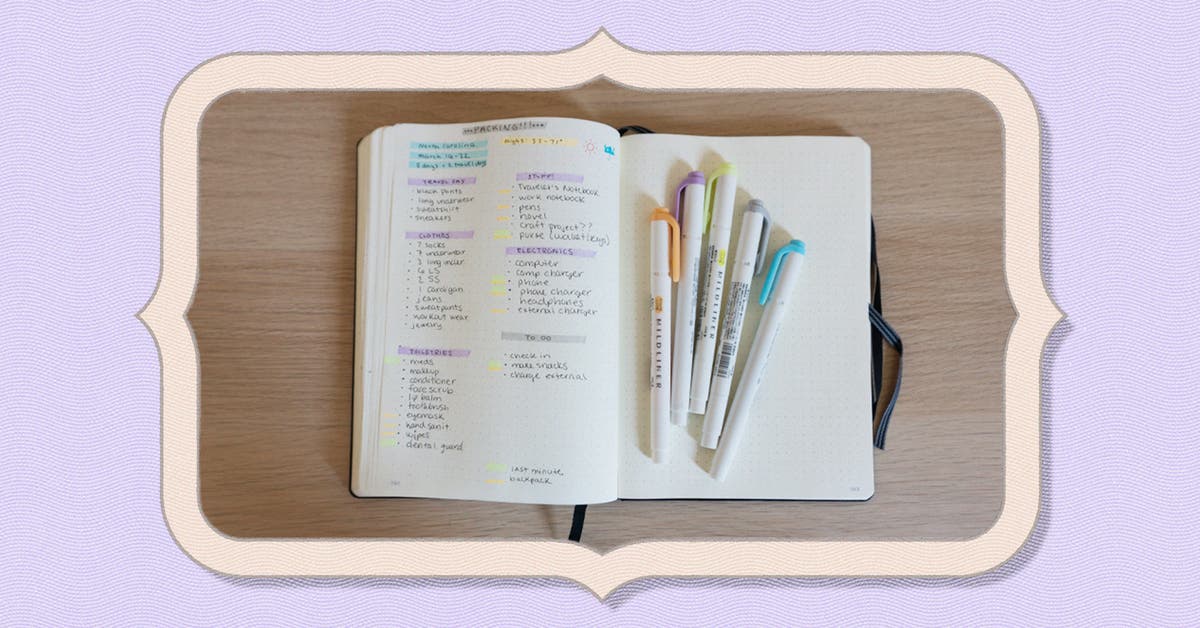 PACKING!!!
North Carolina
March 16-22
5 days + 2 travel days
TRAVEL DAY
• black pants
• long underwear
• sweatshirt
• sneakers
CLOTHES
• 7 socks
• 7 underwear
• 3 long under
• 4 LS
• 2 SS
• 1 cardigan
• jeans
• sweatpants
• workout wear
• jewelry
TOILETRIES
• meds
• makeup
• conditioner
• face scrub
• lip balm
• toothbrush
• eyemask
• hand sanit
• wipes
• dental guard
STUFF!
• Traveler's Notebook
• work notebook
• pens
• novel
• craft project??
• purse (wallet/keys)
ELECTRONICS
• computer
• comp charger
• phone
• phone charger
• headphones
• external charger
TO DO
• check in
• make snacks
• charge external
last minute
backpack
MILDLINER
MILDLINER